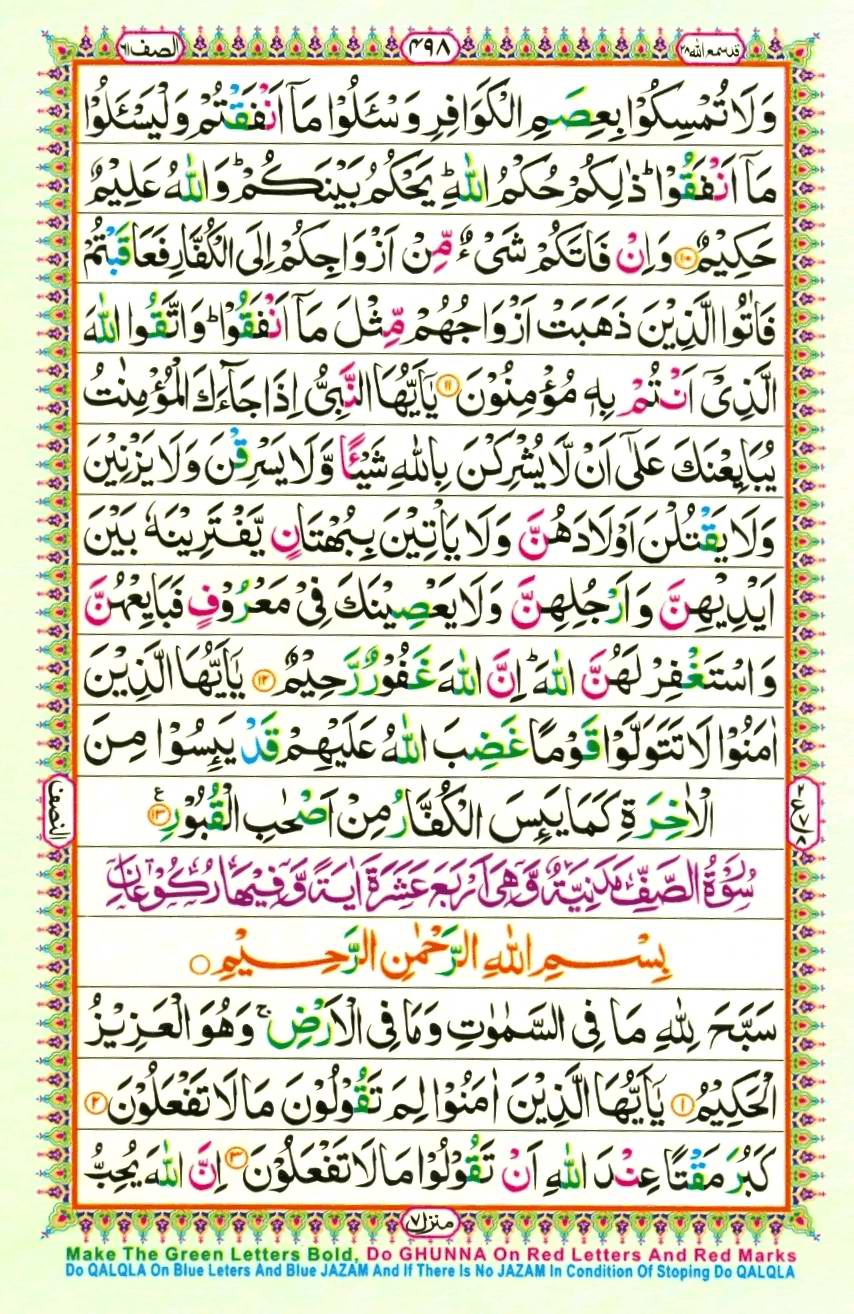 قد سمع الله ٢٨
۴۹۸
الصف ٦١
وَلَا تُمْسِكُوْا بِعِصَمِ الْكَوَافِرِ وَسْـَٔلُوْا مَاۤ اَنْفَقْتُمْ وَلْيَسْـَٔلُوْا
مَاۤ اَنْفَقُوْا ؕ ذٰلِكُمْ حُكْمُ اللّٰهِ ؕ يَحْكُمُ بَيْنَكُمْ ؕ وَاللّٰهُ عَلِيْمٌ
حَكِيْمٌ ۱۰ وَاِنْ فَاتَكُمْ شَیْءٌ مِّنْ اَزْوَاجِكُمْ اِلَى الْكُفَّارِ فَعَاقَبْتُمْ
فَاٰتُوا الَّذِيْنَ ذَهَبَتْ اَزْوَاجُهُمْ مِّثْلَ مَاۤ اَنْفَقُوْا ؕ وَاتَّقُوا اللّٰهَ
الَّذِیْۤ اَنْتُمْ بِهٖ مُؤْمِنُوْنَ ۱۱ يٰۤاَيُّهَا النَّبِیُّ اِذَا جَآءَكَ الْمُؤْمِنٰتُ
يُبَايِعْنَكَ عَلٰۤى اَنْ لَّا يُشْرِكْنَ بِاللّٰهِ شَيْـًٔا وَّلَا يَسْرِقْنَ وَلَا يَزْنِيْنَ
وَلَا يَقْتُلْنَ اَوْلَادَهُنَّ وَلَا يَاْتِيْنَ بِبُهْتَانٍ يَّفْتَرِيْنَهٗ بَيْنَ
اَيْدِيْهِنَّ وَاَرْجُلِهِنَّ وَلَا يَعْصِيْنَكَ فِیْ مَعْرُوْفٍ فَبَايِعْهُنَّ
وَاسْتَغْفِرْ لَهُنَّ اللّٰهَ ؕ اِنَّ اللّٰهَ غَفُوْرٌ رَّحِيْمٌ ۱۲ يٰۤاَيُّهَا الَّذِيْنَ
اٰمَنُوْا لَا تَتَوَلَّوْا قَوْمًا غَضِبَ اللّٰهُ عَلَيْهِمْ قَدْ يَىِٕسُوْا مِنَ
الْاٰخِرَةِ كَمَا يَىِٕسَ الْكُفَّارُ مِنْ اَصْحٰبِ الْقُبُوْرِ ۱۳ ع
النصف
٢ ع ٧ ٨
سُوْرَةُ الصَّفِّ مَدَنِيَّةٌ وَّهِیَ اَرْبَعَ عَشَرَةَ اٰيَةً وَّفِيْهَا رُكُوْعَانِ
بِسْمِ اللّٰهِ الرَّحْمٰنِ الرَّحِيْمِ
سَبَّحَ لِلّٰهِ مَا فِی السَّمٰوٰتِ وَمَا فِی الْاَرْضِ ۚ وَهُوَ الْعَزِيْزُ
الْحَكِيْمُ ۱ يٰۤاَيُّهَا الَّذِيْنَ اٰمَنُوْا لِمَ تَقُوْلُوْنَ مَا لَا تَفْعَلُوْنَ ۲
كَبُرَ مَقْتًا عِنْدَ اللّٰهِ اَنْ تَقُوْلُوْا مَا لَا تَفْعَلُوْنَ ۳ اِنَّ اللّٰهَ يُحِبُّ
منزل ٧
Make The Green Letters Bold, Do GHUNNA On Red Letters And Red Marks
Do QALQLA On Blue Leters And Blue JAZAM And If There Is No JAZAM In Condition Of Stoping Do QALQLA